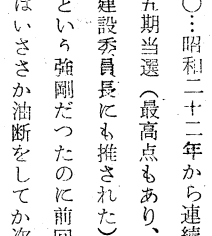 〇…昭和二十二年から連続
五期当選（最高点もあり、
建設委員長にも推された）
という強剛だつたのに前回
はいささか油断をしてか次